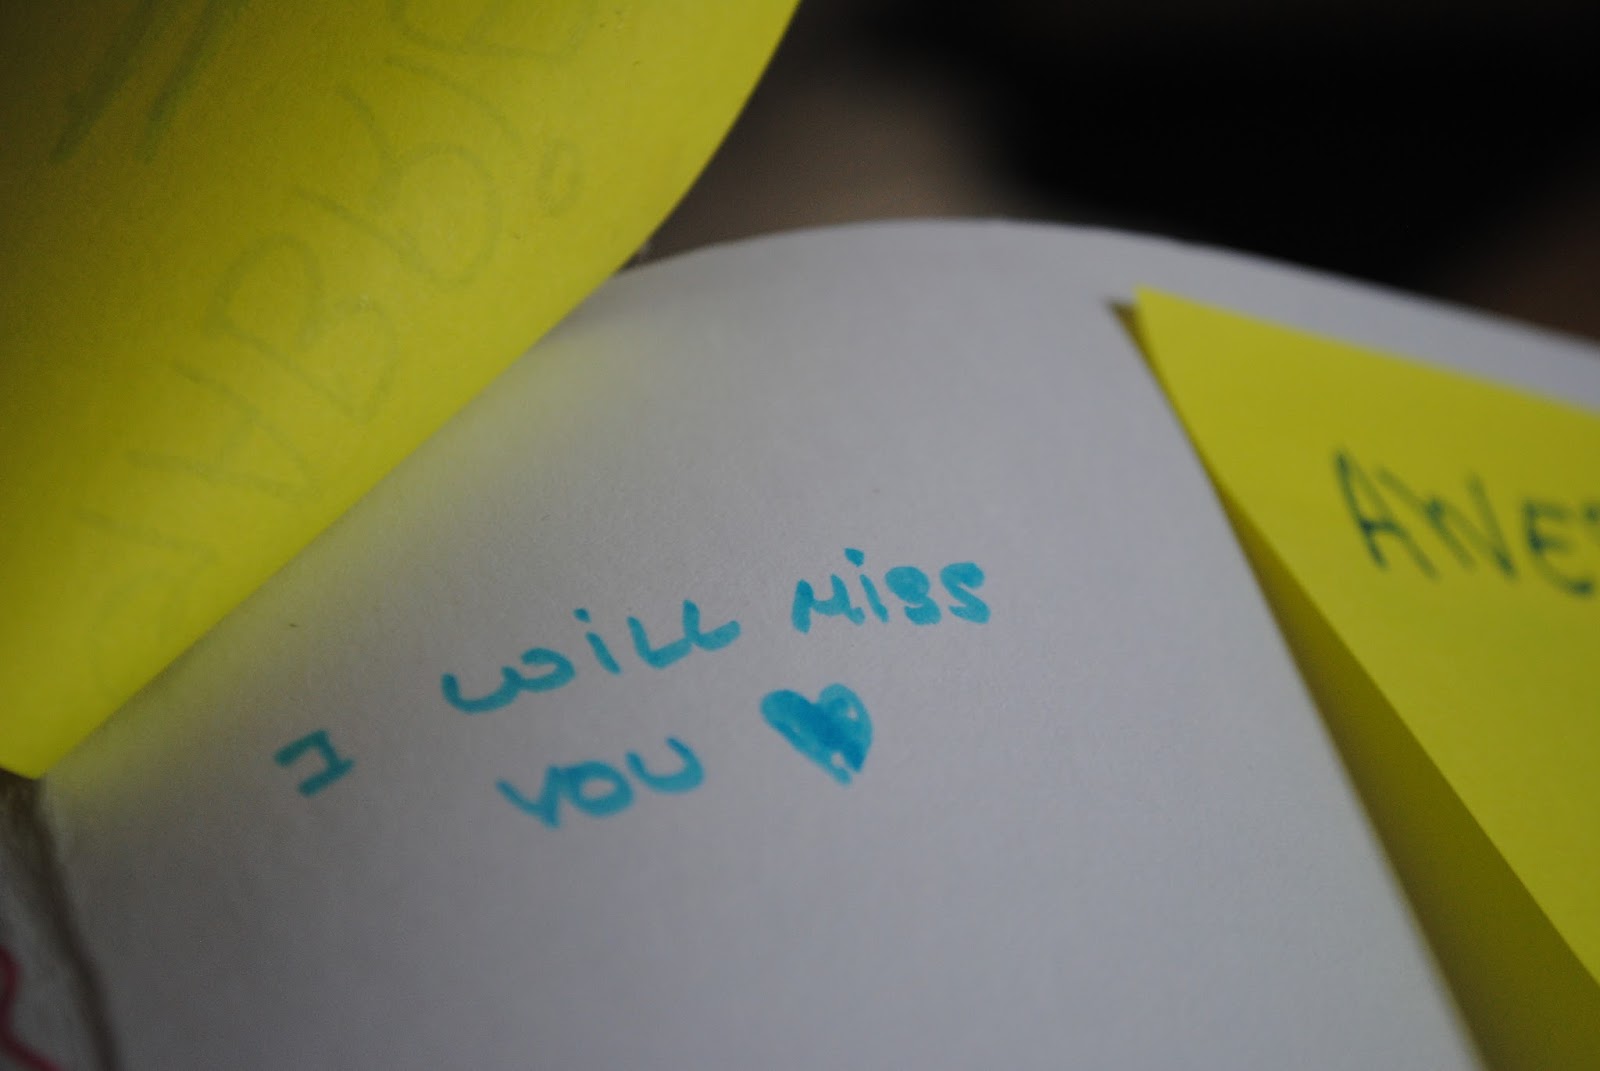 I WILL MISS
YOU ♥
AWE